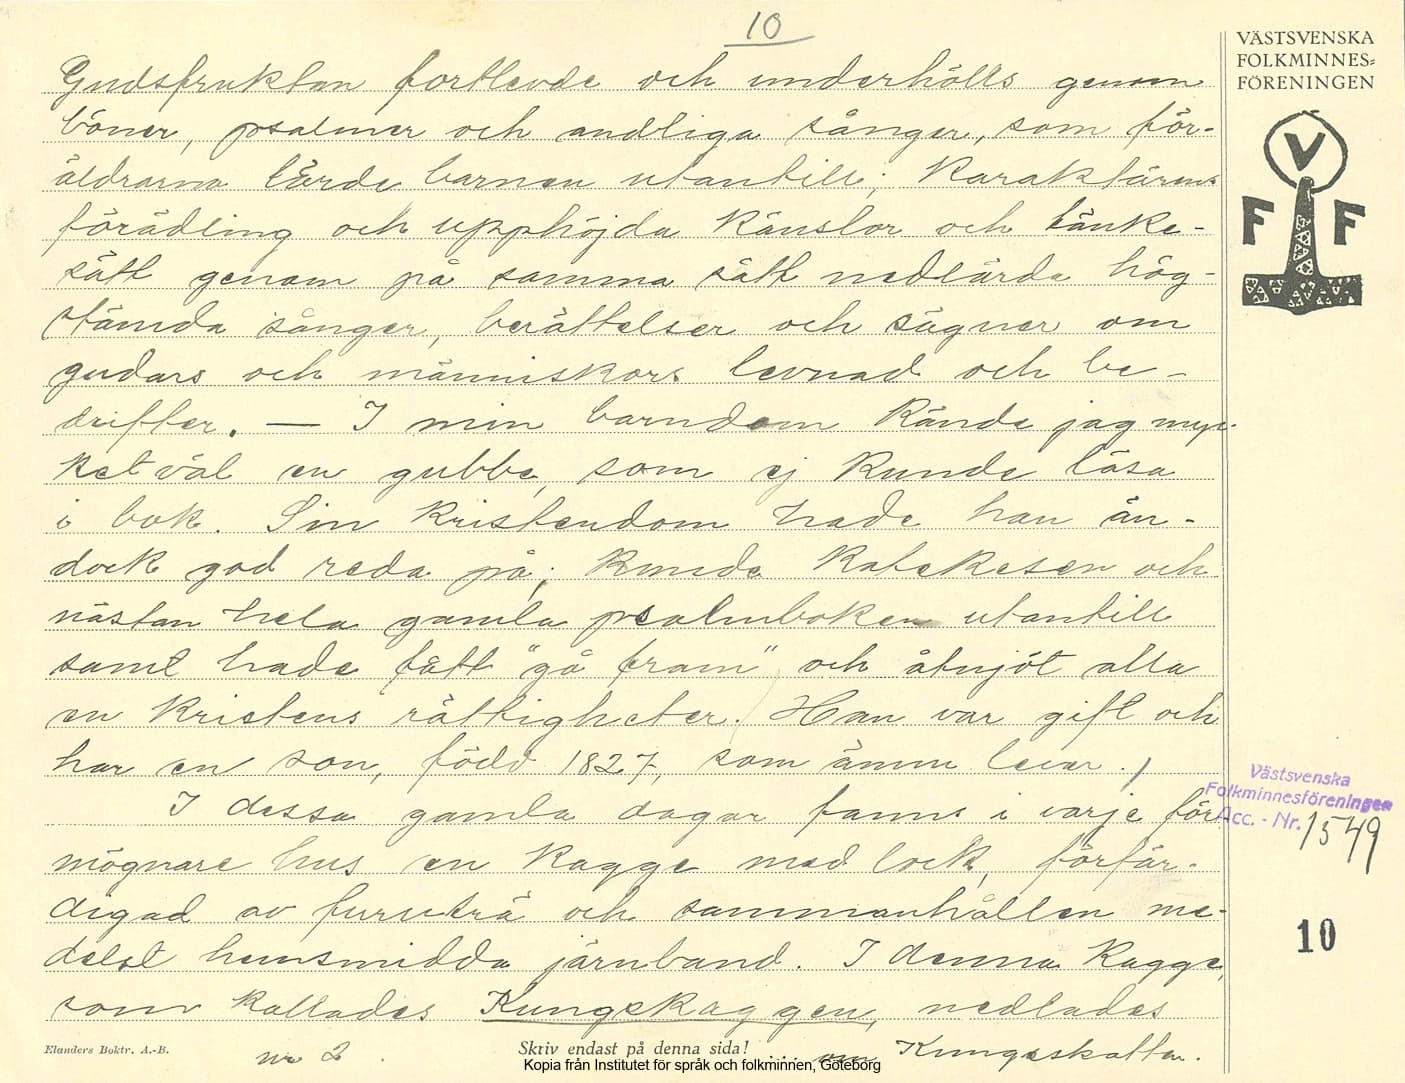 10
VÄSTSVENSKA
FOLKMINNES=
FÖRENINGEN
Gudsfruktan fortlevde och underhölls genom
böner, psalmer och andliga sånger, som för-
äldrarna lärde barnen utantill; karaktärens
förädling och upphöjda känslor och tänke-
sätt genom på samma sätt nedlärda hög-
stämda sånger, berättelser och sägner om
gudars och människors levnad och be-
drifter. — I min barndom kände jag myc-
ket väl en gubbe, som ej kunde läsa
i bok. Sin kristendom hade han än-
dock god reda på; kunde katekesen och
nästan hela gamla psalmboken utantill
samt hade fått "gå fram" och åtnjöt alla
en kristens rättigheter. (Han var gift och
har en son, född 1827, som ännu lever.)
I dessa gamla dagar fanns i varje för-
mögnare hus en kagge med lock, förfär-
digad av furuträ och sammanhållen me-
delst hemsmidda järnband. I denna kagge,
som kallades Kungskaggen, nedlades
nr 2.
om Kungsskatten.
V
F F
Västsvenska
Folkminnesföreningen
Acc. - Nr. 1549
10
Elanders Boktr. A.-B.
Skriv endast på denna sida!
Kopia från Institutet för språk och folkminnen, Göteborg